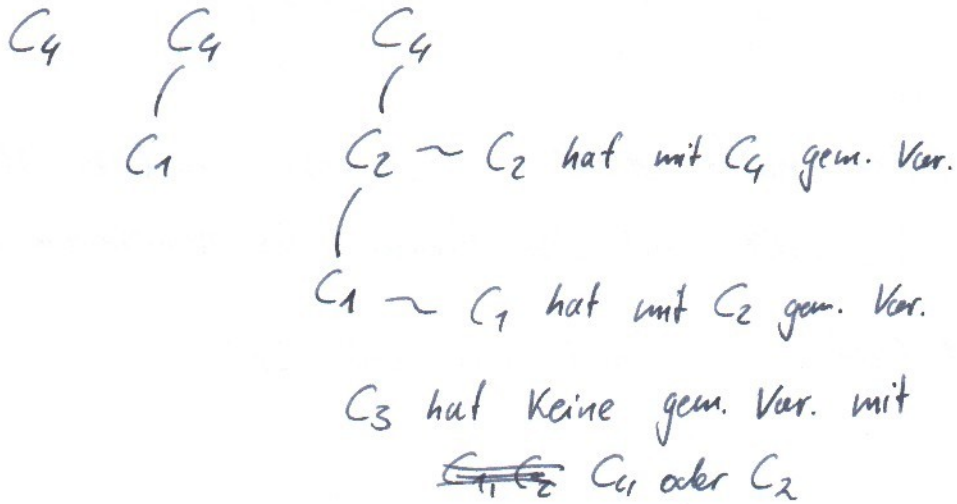 C4 C4 C4
C1 C2 ~ C2 hat mit C4 gem. Var.
C1 ~ C1 hat mit C2 gem. Var.
C3 hat keine gem. Var. mit
C1, C2 C4 oder C2